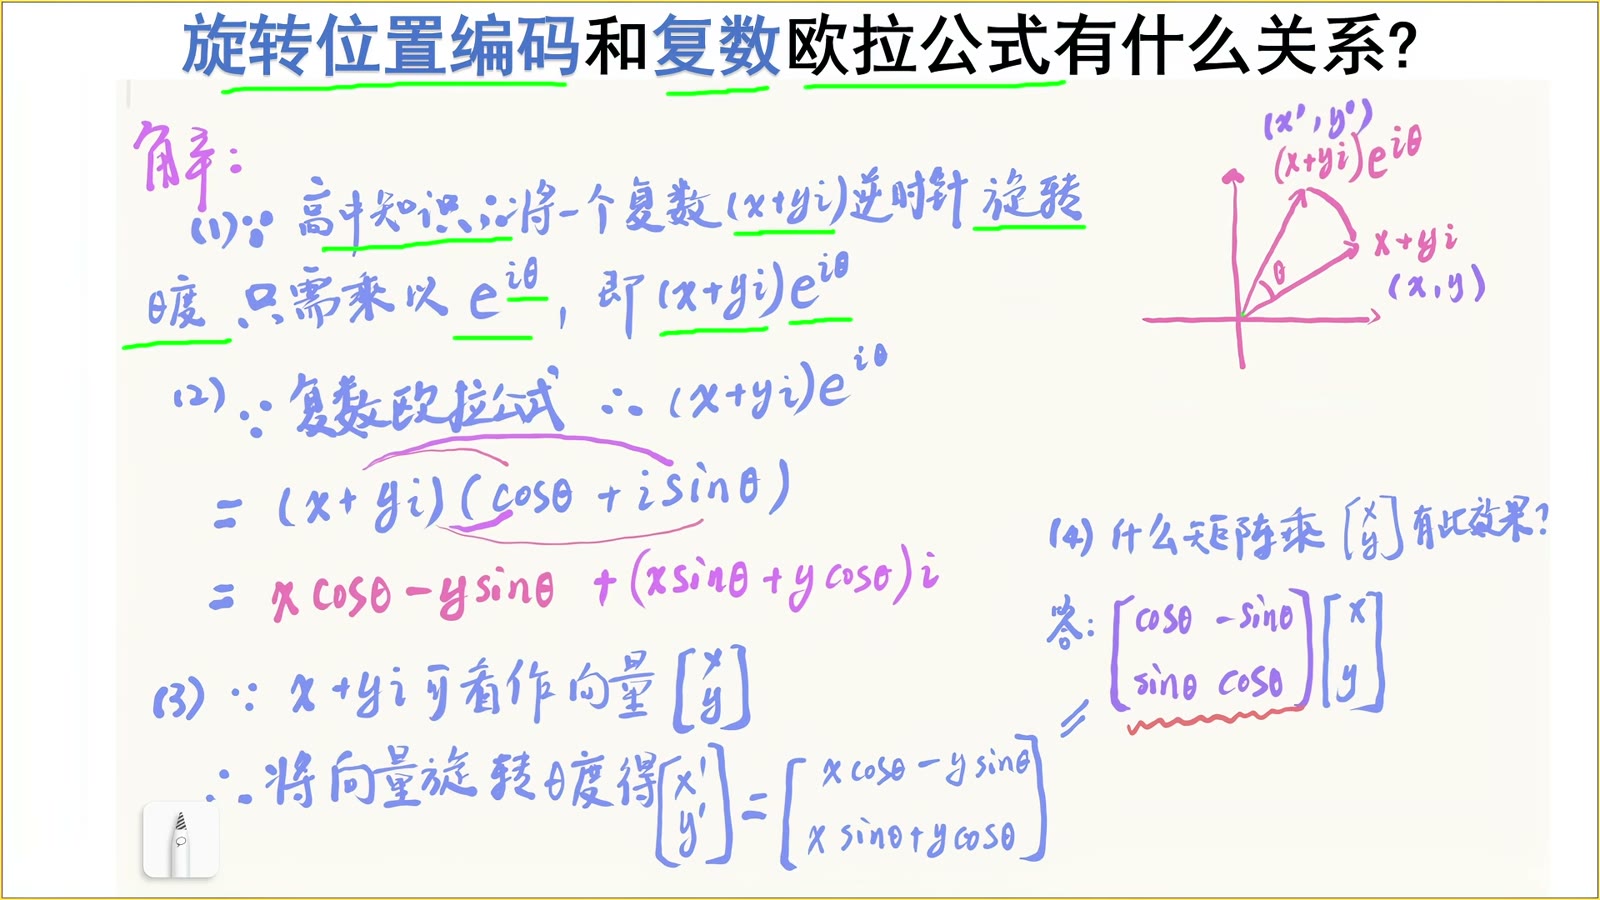 旋转位置编码和复数欧拉公式有什么关系?
解:
(1)∵ 高中知识∴将一个复数(x+yi)逆时针 旋转
θ度 只需乘以 e^{iθ}, 即 (x+yi)e^{iθ}
(2) ∵ 复数欧拉公式 ∴ (x+yi)e^{iθ}
= (x+yi)(cosθ+isinθ)
= xcosθ-ysinθ +(xsinθ+ycosθ)i
(3) ∵ x+yi可看作向量 [x y]
∴ 将向量旋转θ度得[x' y'] = [xcosθ-ysinθ
xsinθ+ycosθ]
(x',y')
(x+yi)e^{iθ}
x+yi
θ
(x,y)
(4) 什么矩阵乘 [x y] 有此效果?
答: [cosθ -sinθ] [x
sinθ cosθ] y]
=